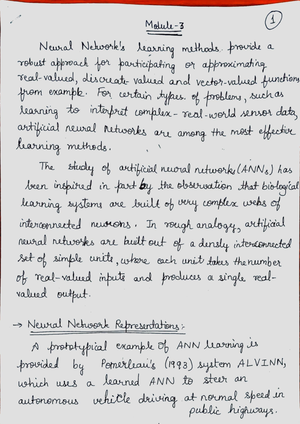 Module-3
1
Neural Network's learning methods provide a
robust approach for participating or approximating
real-valued, discreate valued and vector-valued functions
from example. For certain types of problems, such as
learning to interpret complex- real-world sensor data,
artificial neural networks are among the most effective
learning methods.
The study of artificial neural networks (ANNs) has
been inspired in part by the observation that biological
learning systems are built of very complex webs of
interconnected neurons. In rough analogy, artificial
neural networks are built out of a densly interconnected
set of simple units, where each unit takes the number
of real-valued inputs and produces a single real-
valued output.
→ Neural Network Representations:-
A prototypical example of ANN learning is
provided by Pomerleau's (1993) system ALVINN,
which uses a learned ANN to steer an
autonomous vehicle driving at normal speed in
public highways.